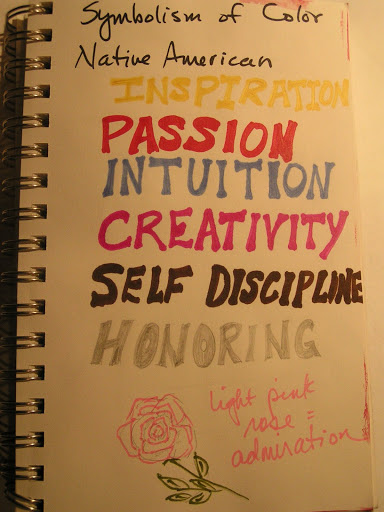 Symbolism of Color
Native American
INSPIRATION
PASSION
INTUITION
CREATIVITY
SELF DISCIPLINE
HONORING
light pink
rose =
admiration